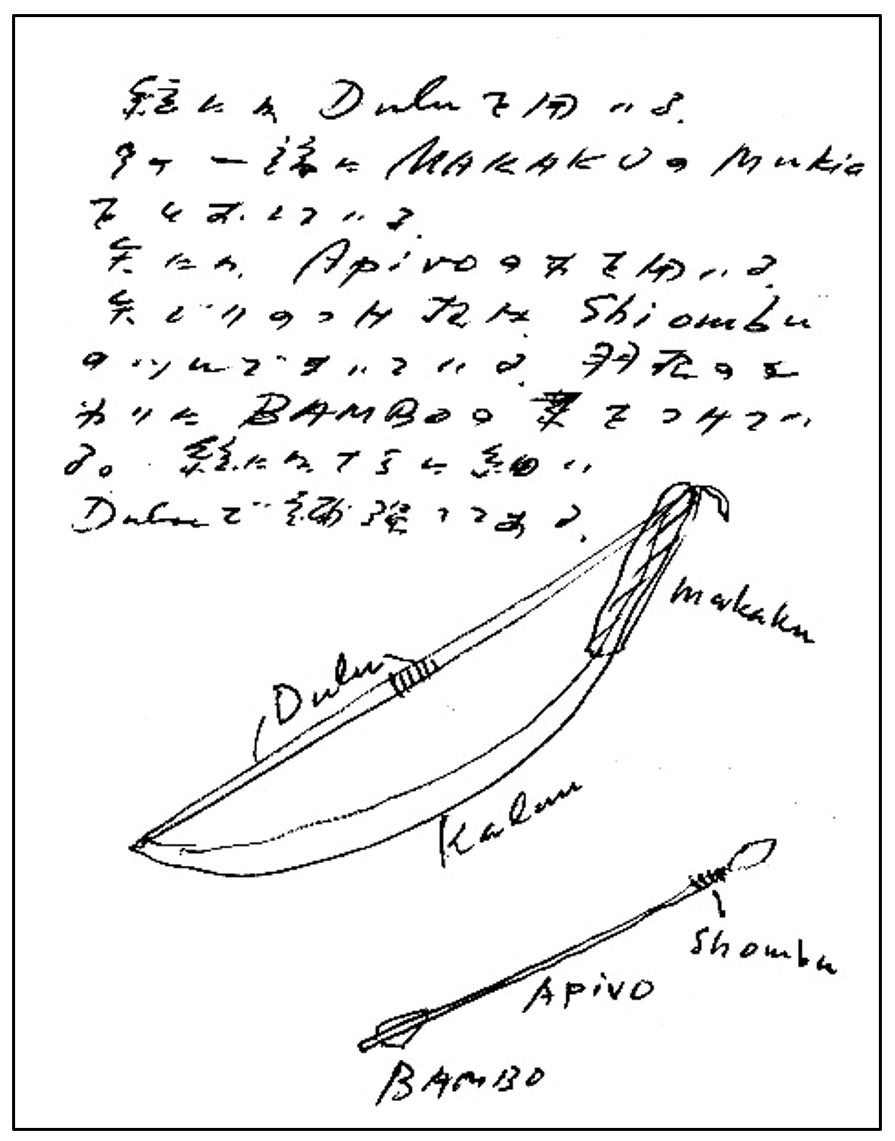 絃には Duluを用いる.
弓の一端に MAKAKUの Mukia
ている.
矢には, Apivoの木を用いる.
矢じりのつけ根は Shiombu
のつるでまいている. 羽根の代
わりに BAMBOの葉をつけてい
る。 絃にはさらに細い
Duluで補強してある.
makaku
Dulu
Kalau
Shombu
APiVO
BAMBO